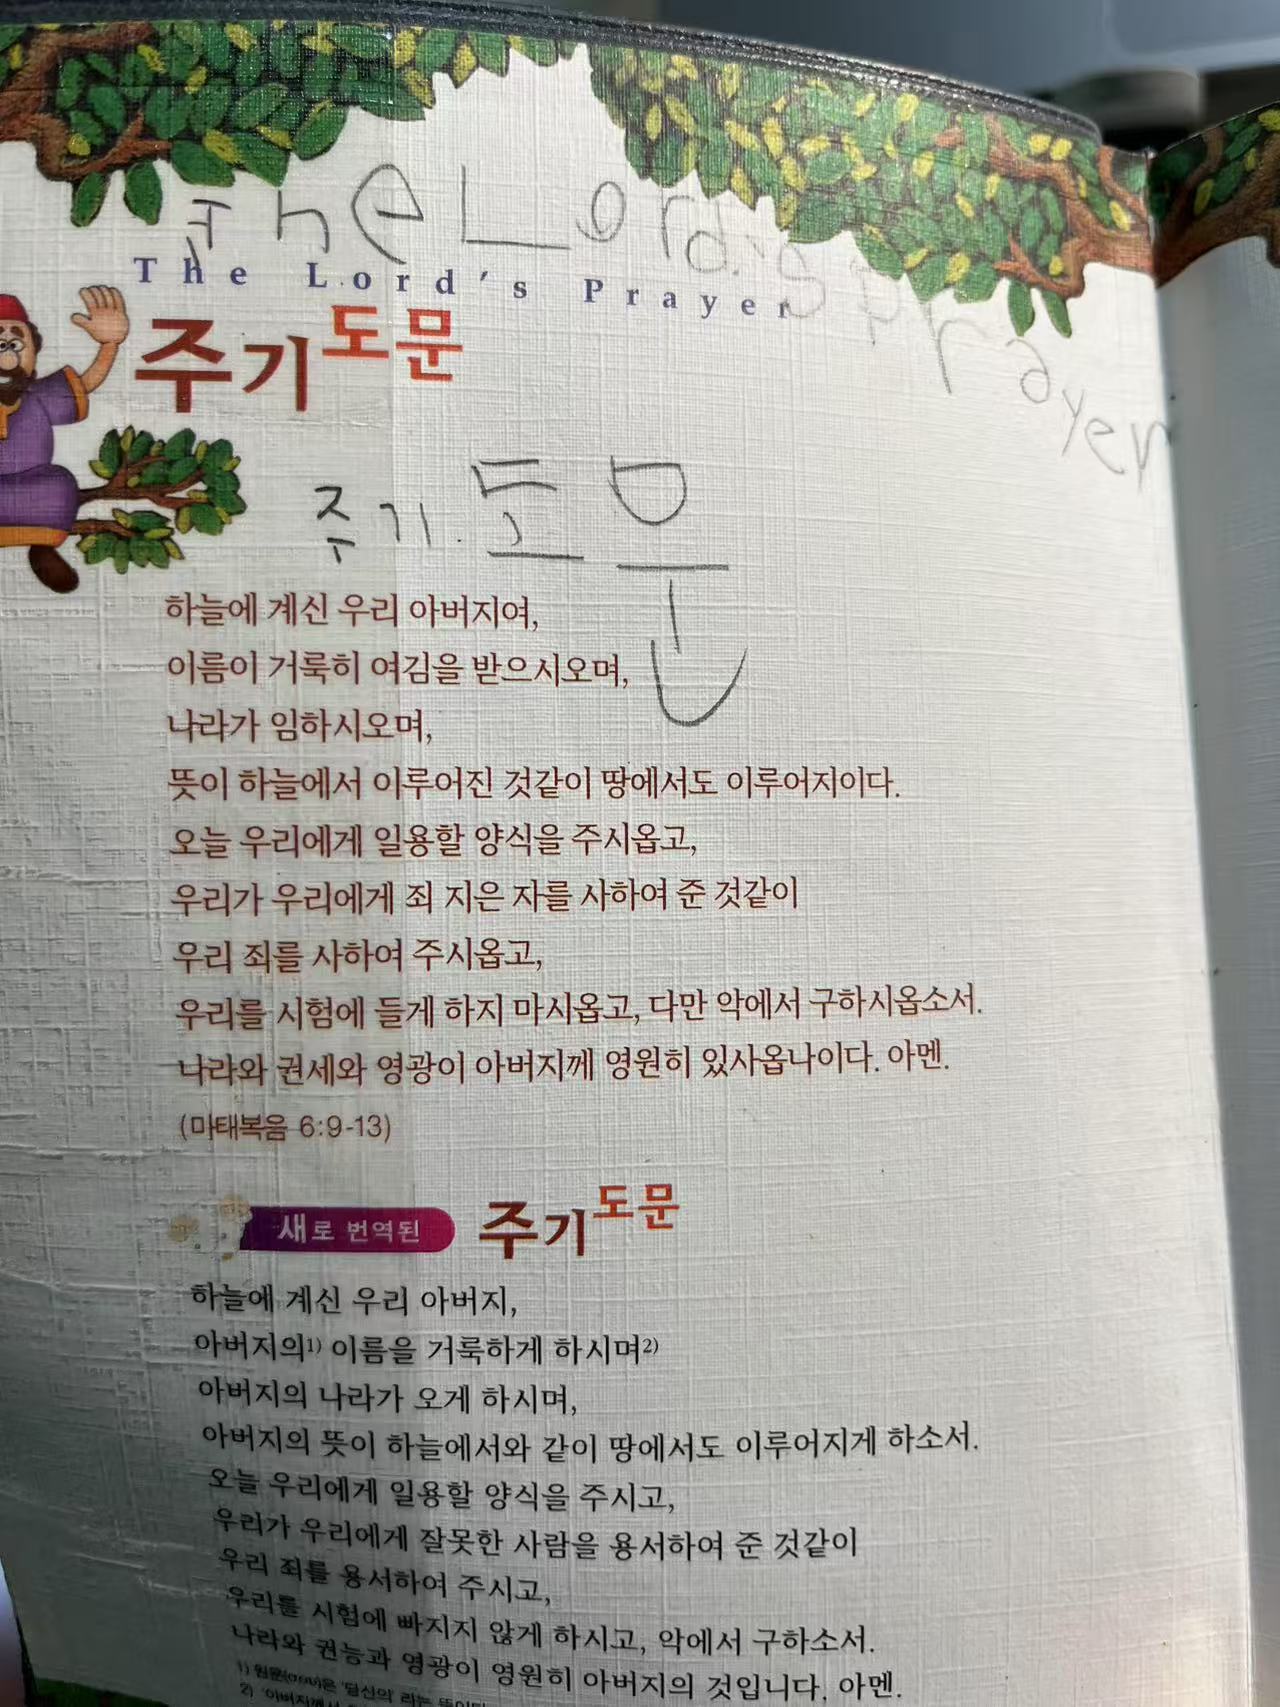 The Lord's Prayer
The Lord's Prayer
주기도문
주기도문
하늘에 계신 우리 아버지여,
이름이 거룩히 여김을 받으시오며,
나라가 임하시오며,
뜻이 하늘에서 이루어진 것같이 땅에서도 이루어지이다.
오늘 우리에게 일용할 양식을 주시옵고,
우리가 우리에게 죄 지은 자를 사하여 준 것같이
우리 죄를 사하여 주시옵고,
우리를 시험에 들게 하지 마시옵고, 다만 악에서 구하시옵소서.
나라와 권세와 영광이 아버지께 영원히 있사옵나이다. 아멘.
(마태복음 6:9-13)
새로 번역된 주기도문
하늘에 계신 우리 아버지,
아버지의1) 이름을 거룩하게 하시며2)
아버지의 나라가 오게 하시며,
아버지의 뜻이 하늘에서와 같이 땅에서도 이루어지게 하소서.
오늘 우리에게 일용할 양식을 주시고,
우리가 우리에게 잘못한 사람을 용서하여 준 것같이
우리 죄를 용서하여 주시고,
우리를 시험에 빠지지 않게 하시고, 악에서 구하소서.
나라와 권능과 영광이 영원히 아버지의 것입니다. 아멘.
1) '당신의' 라는
2)